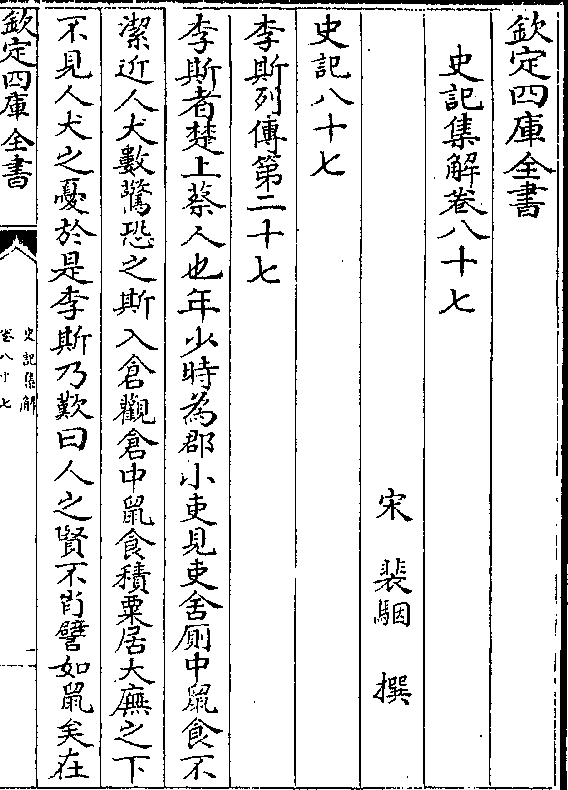 欽定四庫全書
史記集解卷八十七
宋 裴駰 撰
史記八十七
李斯列傳第二十七
李斯者楚上蔡人也年少時為郡小吏見吏舍厠中鼠食不
潔近人犬數驚恐之斯入倉觀倉中鼠食積粟居大廡之下
不見人犬之憂於是李斯乃歎曰人之賢不肖譬如鼠矣在
欽定四庫全書
史記集解
卷八十七